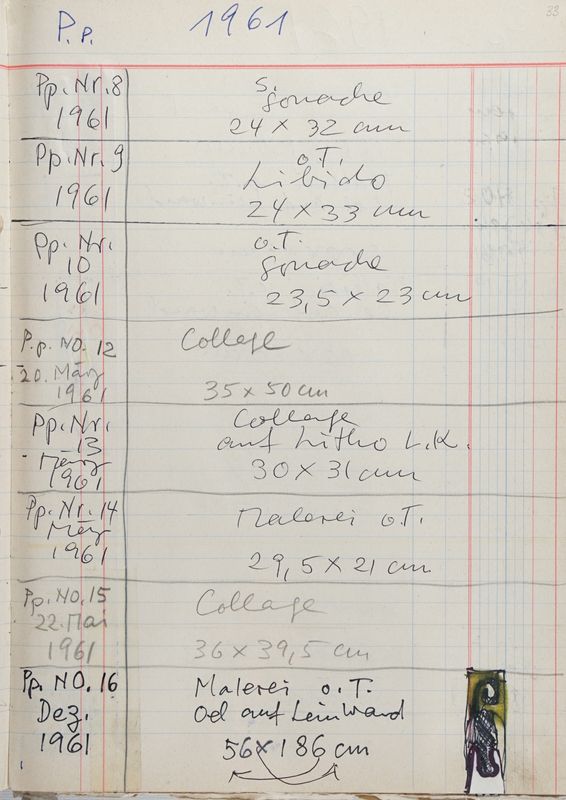 33
P.p. 1961
Pp. Nr. 8 s.
1961 gouache
24 x 32 cm
Pp. Nr. 9 o.T.
1961 Libido
24 x 33 cm
Pp. Nr. o.T.
10 gouache
1961 23,5 x 23 cm
P.p. NO. 12 Collage
20. März
1961 35 x 50 cm
Pp. Nr. Collage
13 auf Litho L.K.
März 30 x 31 cm
1961
Pp. Nr. 14 Malerei o.T.
März
1961 29,5 x 21 cm
Pp. NO. 15 Collage
22. Mai
1961 36 x 39,5 cm
Pp. NO. 16 Malerei o.T.
Dez. Oel auf Leinwand
1961 56 x 186 cm